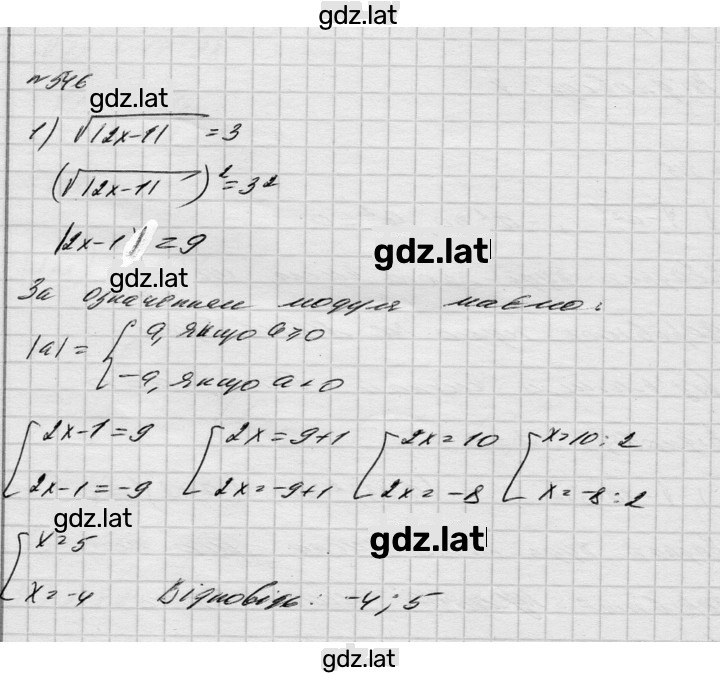 gdz.lat
№546
gdz.lat
1) √|2x-1| = 3
(√|2x-1|)² = 3²
|2x-1| = 9
gdz.lat
gdz.lat
За означенням модуля маємо:
|a| = { a, якщо a ≥ 0
{ -a, якщо a < 0
[ 2x-1=9 [ 2x=9+1 [ 2x=10 [ x=10:2
[ 2x-1=-9 [ 2x=-9+1 [ 2x=-8 [ x=-8:2
gdz.lat
gdz.lat
[ x=5
[ x=-4 Відповідь: -4; 5
gdz.lat